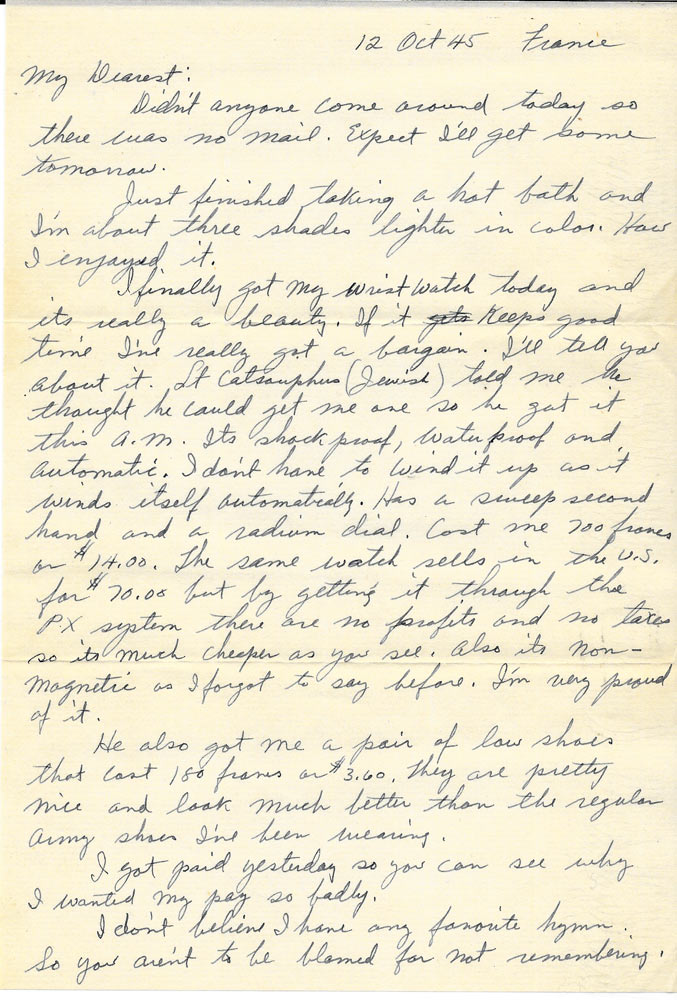 12 Oct 45 France
My Dearest:
Didn't anyone come around today so
there was no mail. Expect I'll get some
tomorrow.
Just finished taking a hot bath and
I'm about three shades lighter in color. How
I enjoyed it.
I finally got my wrist watch today and
its really a beauty. If it gets keeps good
time I've really got a bargain. I'll tell you
about it. Lt (Jewish) told me he
thought he could get me one so he got it
this A.M. Its shock proof, waterproof and
automatic. I don't have to wind it up as it
winds itself automatically. Has a sweep second
hand and a radium dial. Cost me 700 francs
or $14.00. The same watch sells in the U.S.
for $70.00 but by getting it through the
P.X system there are no profits and no taxes
so its much cheaper as you see. Also its non-
magnetic as I forgot to say before. I'm very proud
of it.
He also got me a pair of low shoes
that cost 180 francs or $3.60. They are pretty
nice and look much better than the regular
Army shoes I've been wearing.
I got paid yesterday so you can see why
I wanted my pay so badly.
I don't believe I have any favorite hymn.
So you aren't to be blamed for not remembering.